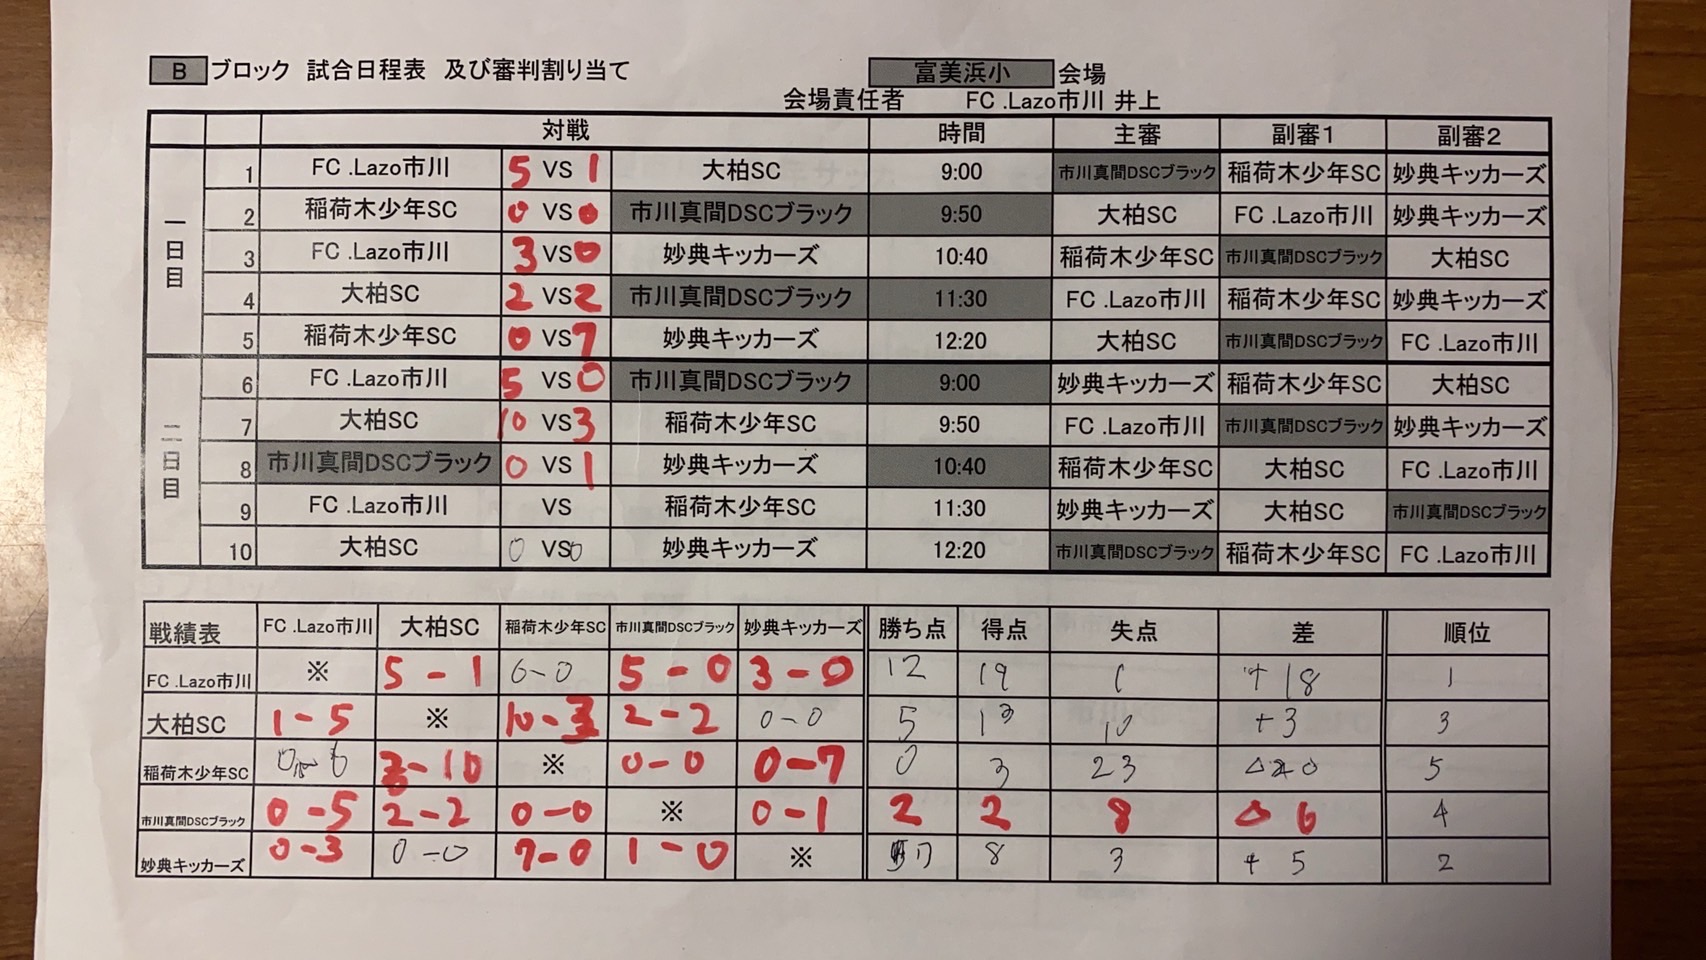 B ブロック 試合日程表 及び審判割り当て 富美浜小 会場
会場責任者 FC .Lazo市川 井上
対戦 時間 主審 副審1 副審2
一日目
1 FC .Lazo市川 5 VS 1 大柏SC 9:00 市川真間DSCブラック 稲荷木少年SC 妙典キッカーズ
2 稲荷木少年SC 0 VS 0 市川真間DSCブラック 9:50 大柏SC FC .Lazo市川 妙典キッカーズ
3 FC .Lazo市川 3 VS 0 妙典キッカーズ 10:40 稲荷木少年SC 市川真間DSCブラック 大柏SC
4 大柏SC 2 VS 2 市川真間DSCブラック 11:30 FC .Lazo市川 稲荷木少年SC 妙典キッカーズ
5 稲荷木少年SC 0 VS 7 妙典キッカーズ 12:20 大柏SC 市川真間DSCブラック FC .Lazo市川
二日目
6 FC .Lazo市川 5 VS 0 市川真間DSCブラック 9:00 妙典キッカーズ 稲荷木少年SC 大柏SC
7 大柏SC 10 VS 3 稲荷木少年SC 9:50 FC .Lazo市川 市川真間DSCブラック 妙典キッカーズ
8 市川真間DSCブラック 0 VS 1 妙典キッカーズ 10:40 稲荷木少年SC 大柏SC FC .Lazo市川
9 FC .Lazo市川 VS 稲荷木少年SC 11:30 妙典キッカーズ 大柏SC 市川真間DSCブラック
10 大柏SC 0 VS 0 妙典キッカーズ 12:20 市川真間DSCブラック 稲荷木少年SC FC .Lazo市川
戦績表 FC .Lazo市川 大柏SC 稲荷木少年SC 市川真間DSCブラック 妙典キッカーズ 勝ち点 得点 失点 差 順位
FC .Lazo市川 ※ 5-1 6-0 5-0 3-0 12 19 1 +18 1
大柏SC 1-5 ※ 10-3 2-2 0-0 5 13 10 +3 3
稲荷木少年SC 0-6 3-10 ※ 0-0 0-7 0 3 23 5
市川真間DSCブラック 0-5 2-2 0-0 ※ 0-1 2 2 8 △6 4
妙典キッカーズ 0-3 0-0 7-0 1-0 ※ 8 3 +5 2